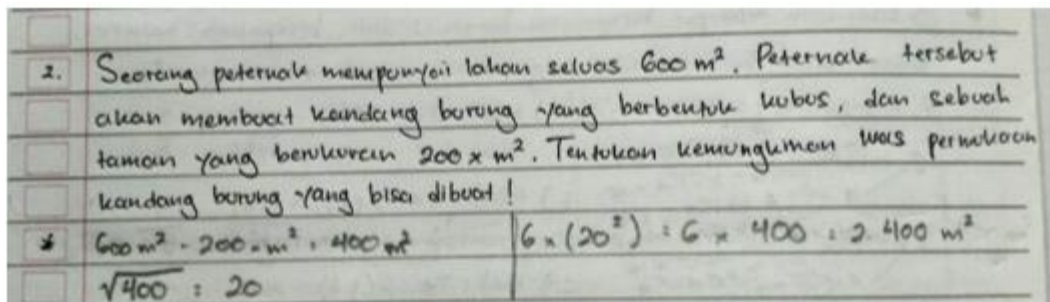 2. Seorang peternak mempunyai lahan seluas 600 m². Peternak tersebut
akan membuat kandang burung yang berbentuk kubus, dan sebuah
taman yang berukuran 200 x m². Tentukan kemungkinan luas permukaan
kandang burung yang bisa dibuat!
* 600 m² - 200 m² = 400 m²
√400 = 20
6 x (20²) = 6 x 400 = 2.400 m²